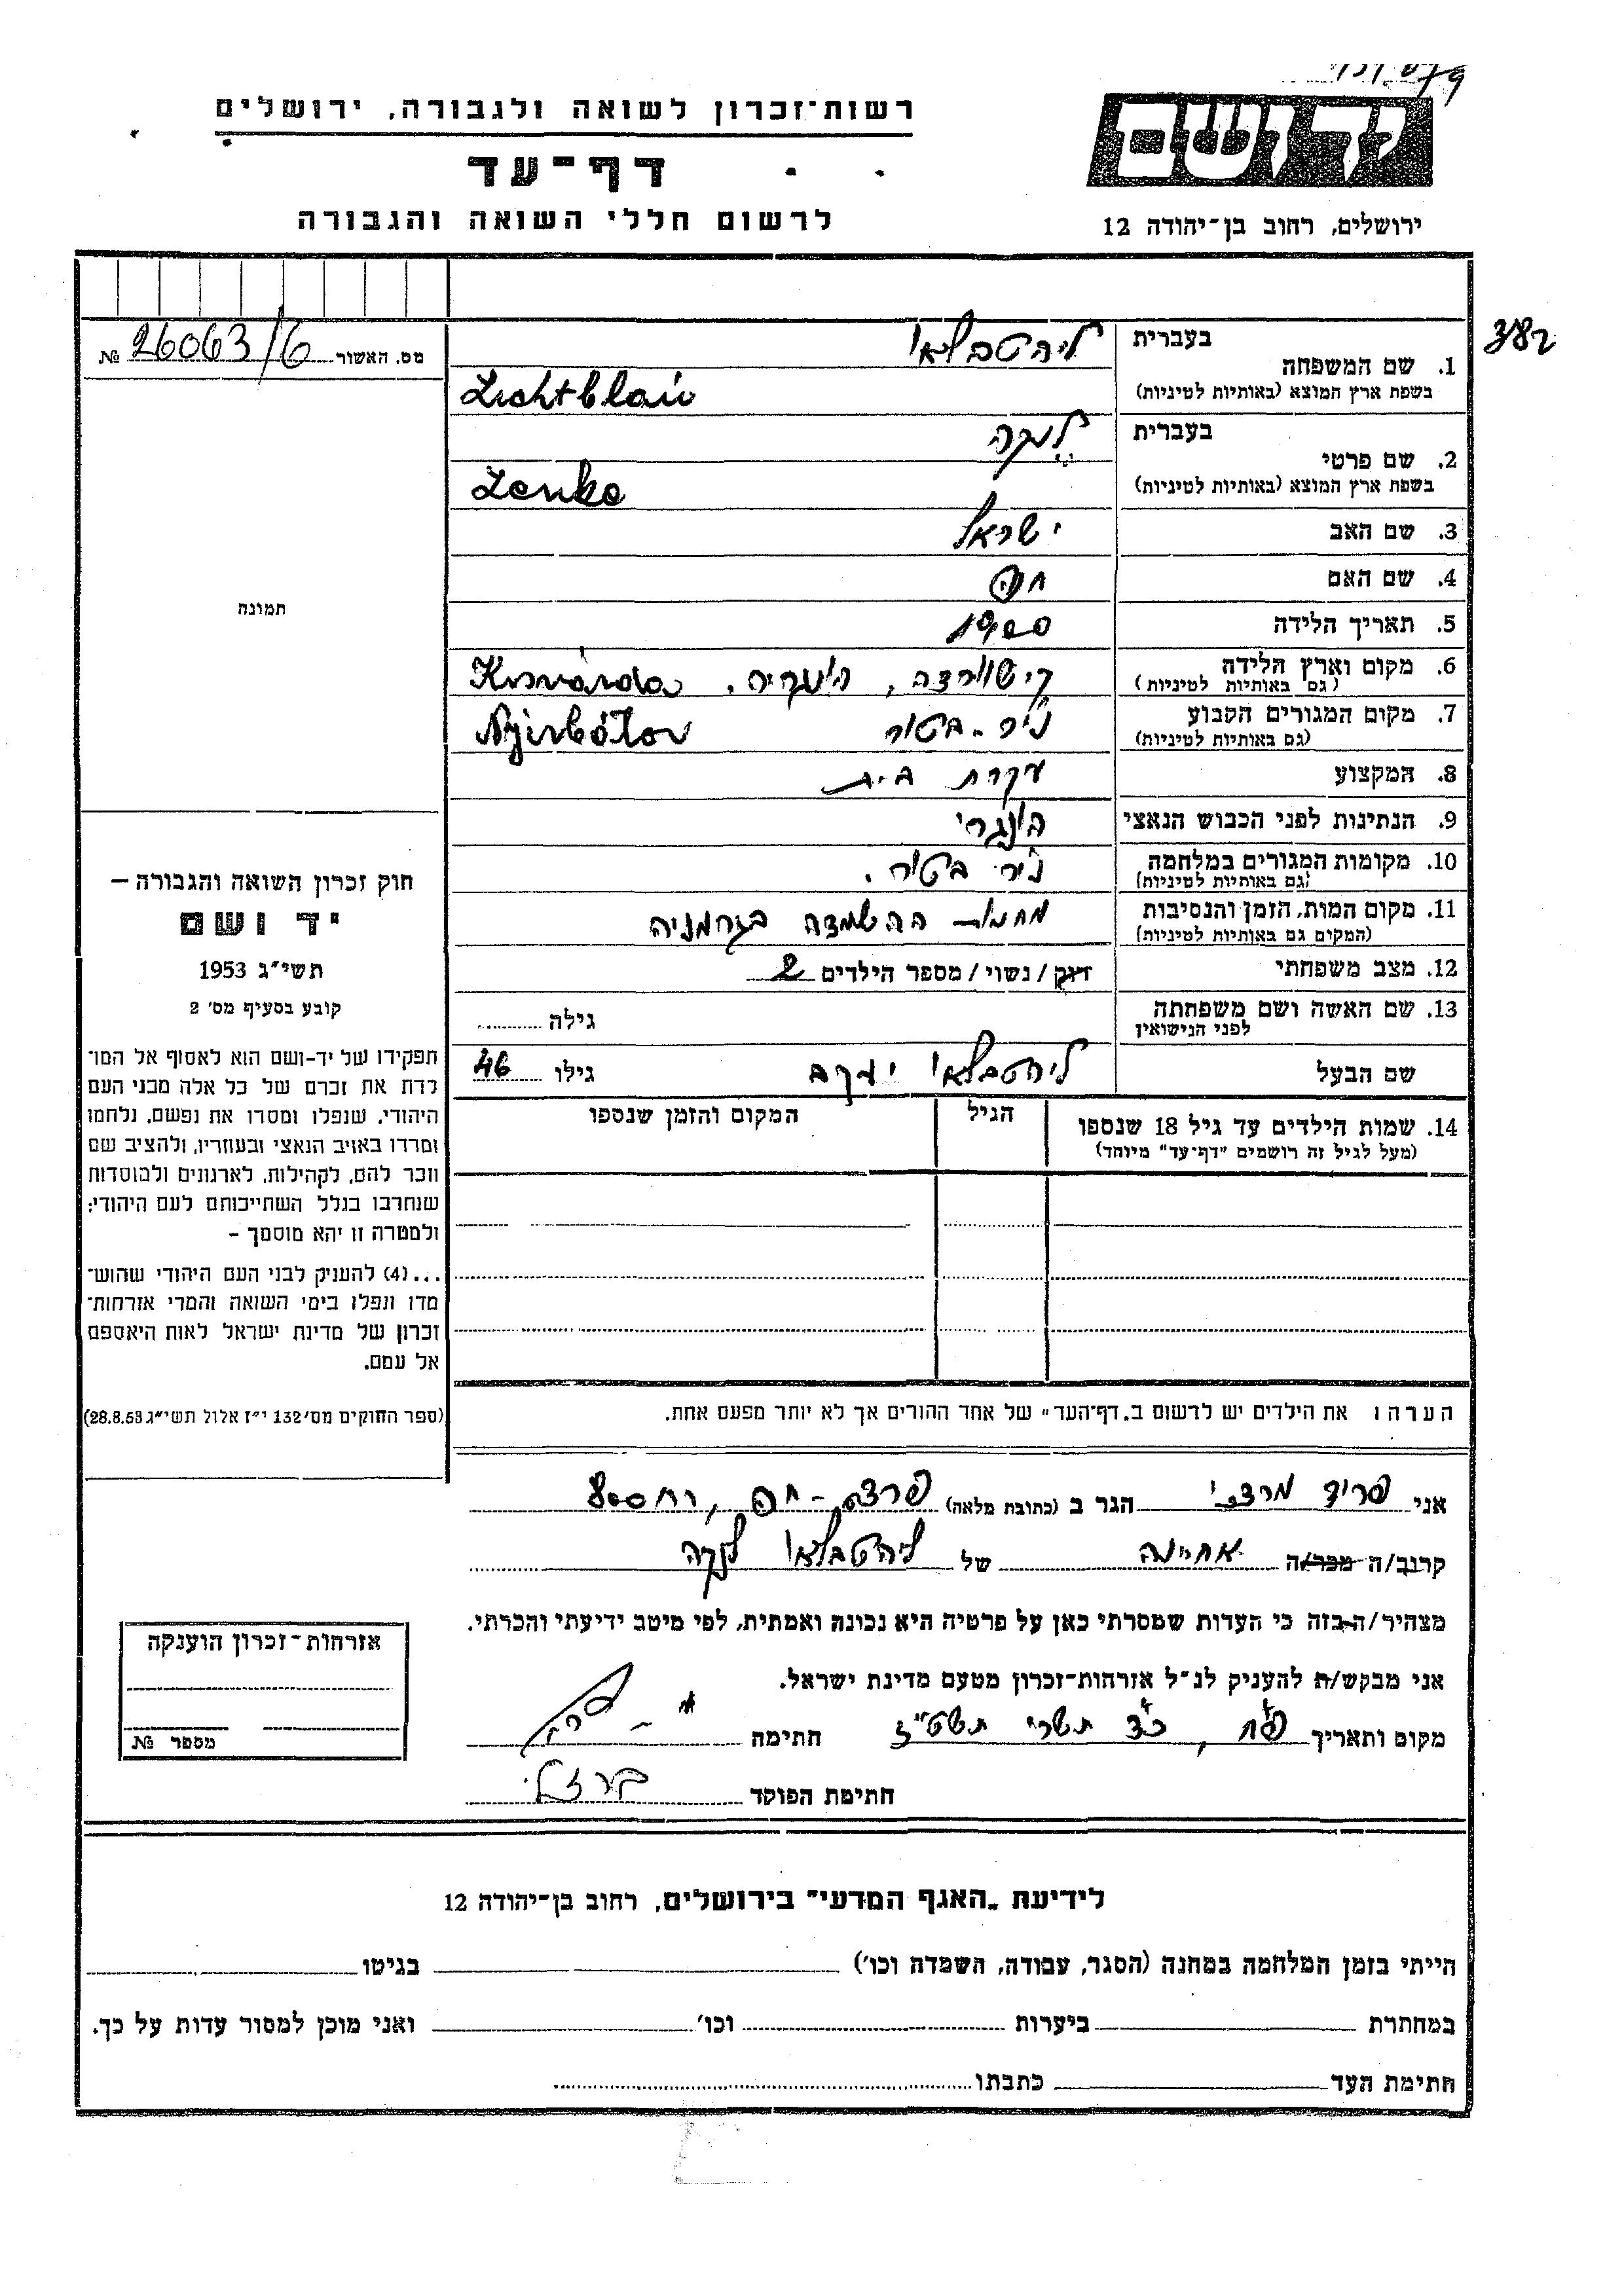 רשות־זכרון לשואה ולגבורה, ירושלים
דף־עד
לרשום חללי השואה והגבורה
ידושם
ירושלים, רחוב בן־יהודה 12
382
מס. האשור 26063/6 №
1. שם המשפחה
בעברית ליהטבלאו
בשפת ארץ המוצא (באותיות לטיניות) Lichtblau
2. שם פרטי
בעברית לנקה
בשפת ארץ המוצא (באותיות לטיניות) Lenke
3. שם האב ישראל
4. שם האם חנה
5. תאריך הלידה 1900
6. מקום וארץ הלידה קישוורדה, הונגריה. Kisvárda
(גם באותיות לטיניות)
7. מקום המגורים הקבוע ניר-בטור Nyirbátor
(גם באותיות לטיניות)
8. המקצוע עקרת בית
9. הנתינות לפני הכבוש הנאצי הונגרי
10. מקומות המגורים במלחמה ניר בטור.
(גם באותיות לטיניות)
11. מקום המות, הזמן והנסיבות מחנות ההשמדה בגרמניה
(המקום גם באותיות לטיניות)
12. מצב משפחתי רווק / נשוי / מספר הילדים 2
13. שם האשה ושם משפחתה
לפני הנישואין
גילה
שם הבעל ליהטבלאו יעקב גילו 46
14. שמות הילדים עד גיל 18 שנספו
(מעל לגיל זה רושמים "דף־עד" מיוחד)
הגיל
המקום והזמן שנספו
תמונה
חוק זכרון השואה והגבורה –
יד ושם
תשי״ג 1953
קובע בסעיף מס׳ 2
תפקידו של יד-ושם הוא לאסוף אל המו־
לדת את זכרם של כל אלה מבני העם
היהודי, שנפלו ומסרו את נפשם, נלחמו
ומרדו באויב הנאצי ובעוזריו, ולהציב שם
וזכר להם, לקהילות, לארגונים ולמוסדות
שנחרבו בגלל השתייכותם לעם היהודי;
ולמטרה זו יהא מוסמך –
...(4) להעניק לבני העם היהודי שהוש־
מדו ונפלו בימי השואה והמרי אזרחות־
זכרון של מדינת ישראל לאות היאספם
אל עמם.
(ספר החוקים מס׳ 132 י״ז אלול תשי״ג 28.8.53)
הערה: את הילדים יש לרשום ב„דף־העד" של אחד ההורים אך לא יותר מפעם אחת.
אני פריד מרדכי הגר ב (כתובת מלאה) פרדס-חנה,
קרוב/ה מכר/ה אחיינה של ליהטבלאו לנקה
מצהיר/ה בזה כי העדות שמסרתי כאן על פרטיה היא נכונה ואמתית, לפי מיטב ידיעתי והכרתי.
אני מבקש/ת להעניק לנ״ל אזרחות-זכרון מטעם מדינת ישראל.
מקום ותאריך פ״ח, כ״ד תשרי תשט״ז חתימה
חתימת הפוקד
אזרחות-זכרון הוענקה
מספר №
לידיעת „האגף המדעי" בירושלים, רחוב בן־יהודה 12
הייתי בזמן המלחמה במחנה (הסגר, עבודה, השמדה וכו׳) בגיטו
במחתרת ביערות וכו׳ ואני מוכן למסור עדות על כך.
חתימת העד כתבתו